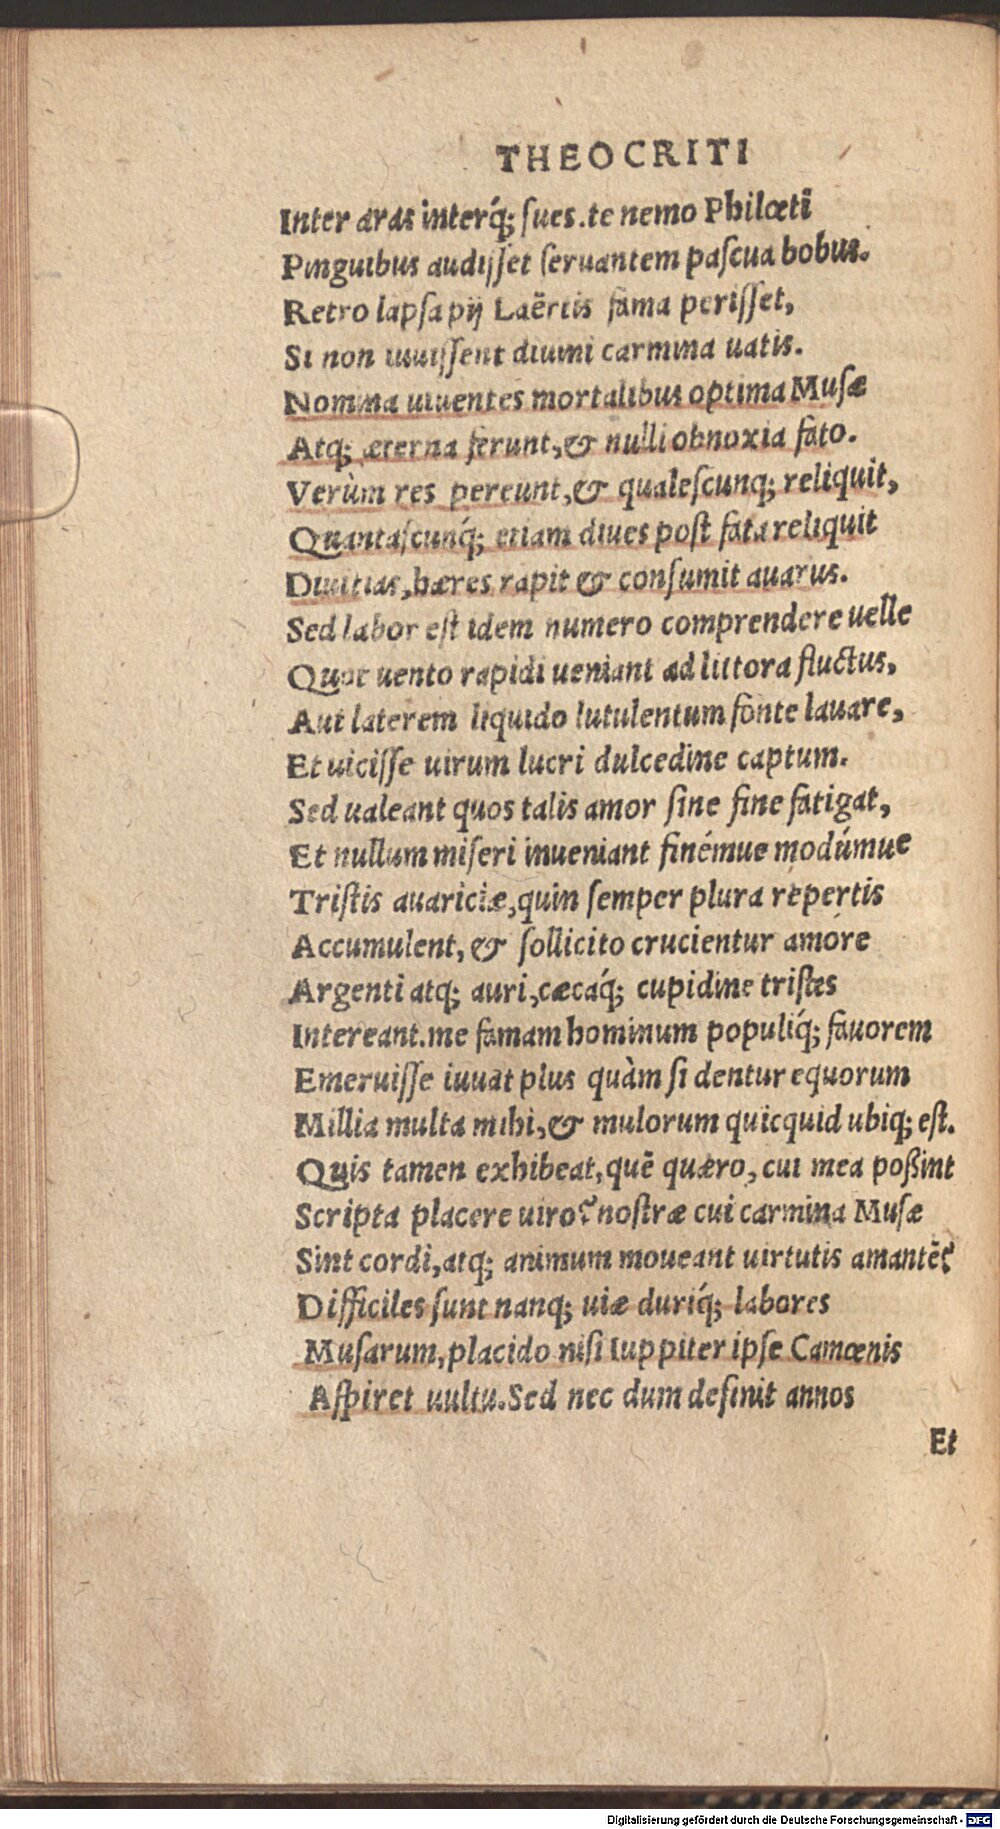 THEOCRITI
Inter aras interq́; ſues.te nemo Philœtī
Pinguibus audiſſet ſeruantem paſcua bobus.
Retro lapſa pij Laërtis fama periſſet,
Si non iuuiſſent diuini carmina uatis.
Nomina uiuentes mortalibus optima Muſæ
Atq; æterna ferunt,& nulli obnoxia fato.
Verùm res pereunt,& qualeſcunq; reliquit,
Quantaſcunq́; etiam diues poſt fata reliquit
Diuitias,hæres rapit & conſumit auarus.
Sed labor eſt idem numero comprendere uelle
Quot uento rapidi ueniant ad littora fluctus,
Aut laterem liquido lutulentum fonte lauare,
Et uiciſſe uirum lucri dulcedine captum.
Sed ualeant quos talis amor ſine fine fatigat,
Et nullum miſeri inueniant finémue modúmue
Triſtis auariciæ,quin ſemper plura repertis
Accumulent,& ſollicito crucientur amore
Argenti atq; auri,cæcaq́; cupidine triſtes
Intereant.me famam hominum populiq́; fauorem
Emeruiſſe iuuat plus quàm ſi dentur equorum
Millia multa mihi,& mulorum quicquid ubiq; eſt.
Quis tamen exhibeat,quē quæro,cui mea poßint
Scripta placere uiro? noſtræ cui carmina Muſæ
Sint cordi,atq; animum moueant uirtutis amantē?
Difficiles ſunt nanq; uiæ duriq́; labores
Muſarum,placido niſi Iuppiter ipſe Camœnis
Aſpiret uultu.Sed nec dum deſinit annos
Et
Digitalisierung gefördert durch die Deutsche Forschungsgemeinschaft - DFG